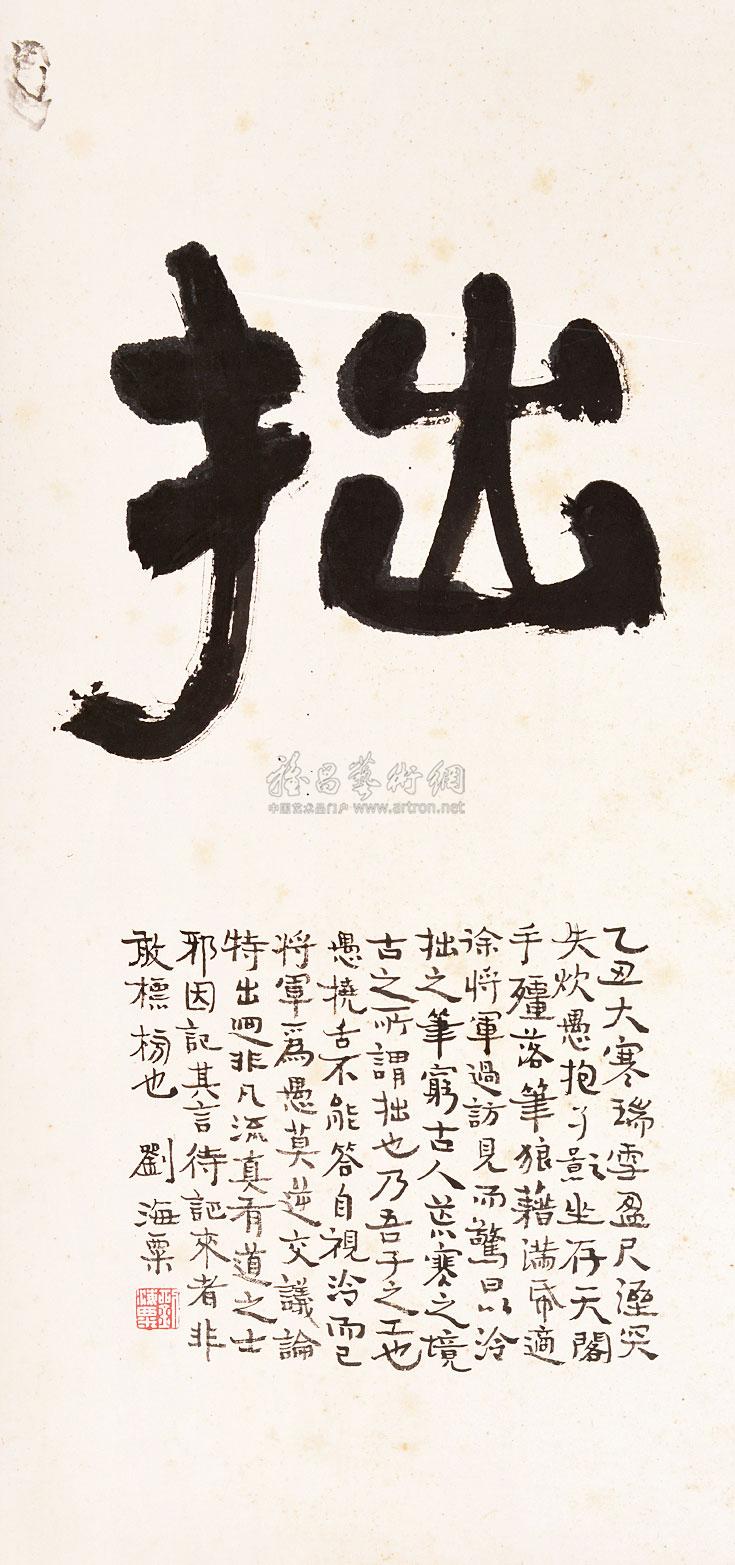 拙
乙丑大寒瑞雪盈尺溼突
失炊愚抱影坐存天閣
手殭落筆狼藉滿帋適
徐將軍過訪見而驚曰以冷
拙之筆窮古人荒寒之境
古之所謂拙也乃吾子之工也
愚撓舌不能答自視冷而已
將軍爲愚莫逆交議論
特出迥非凡流真有道之士
邪因記其言待記來者非
敢標榜也 劉海粟
雅昌藝術網
中国艺术品门户 www.artron.net